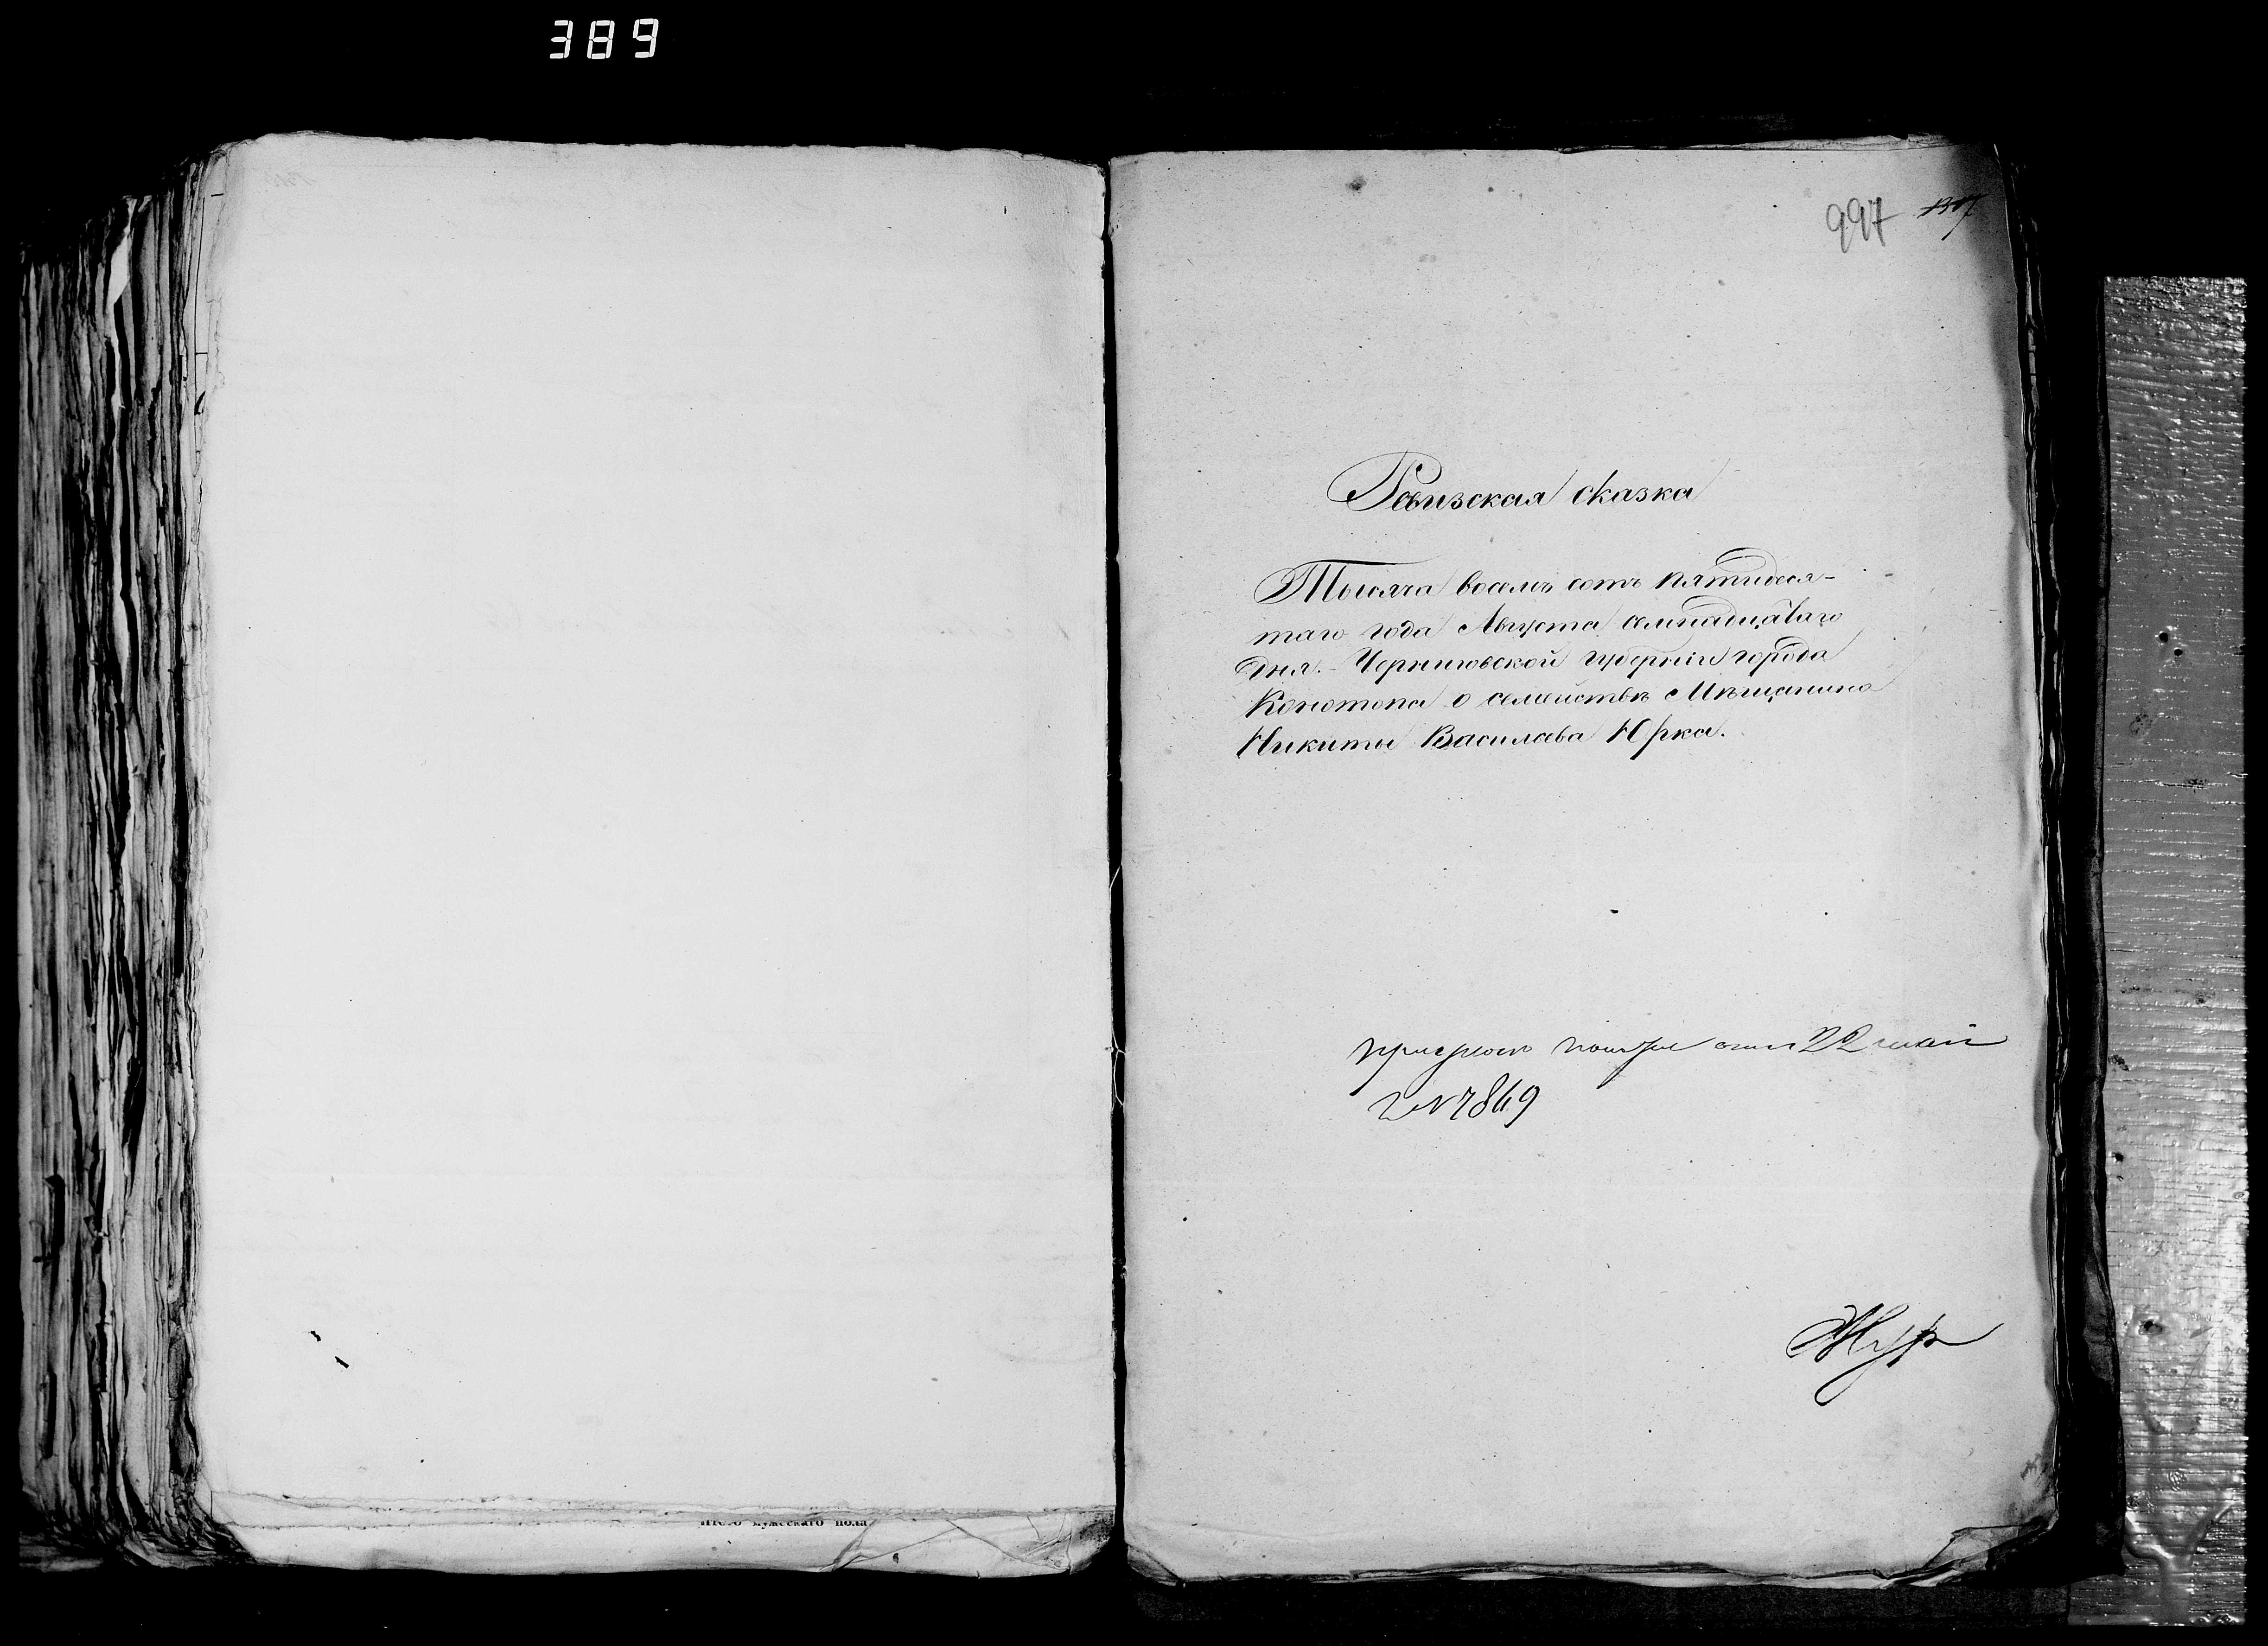 389
997
Ревизская сказка
Тысяча восемь сотъ пятидеся-
таго года Августа семнадцатаго
дня. Черниговской губерніи города
Конотопа о семействѣ Мѣщанина
Никиты Васильева Юрка.
22 мая
№ 7869
Жур
Итого мужескаго пола